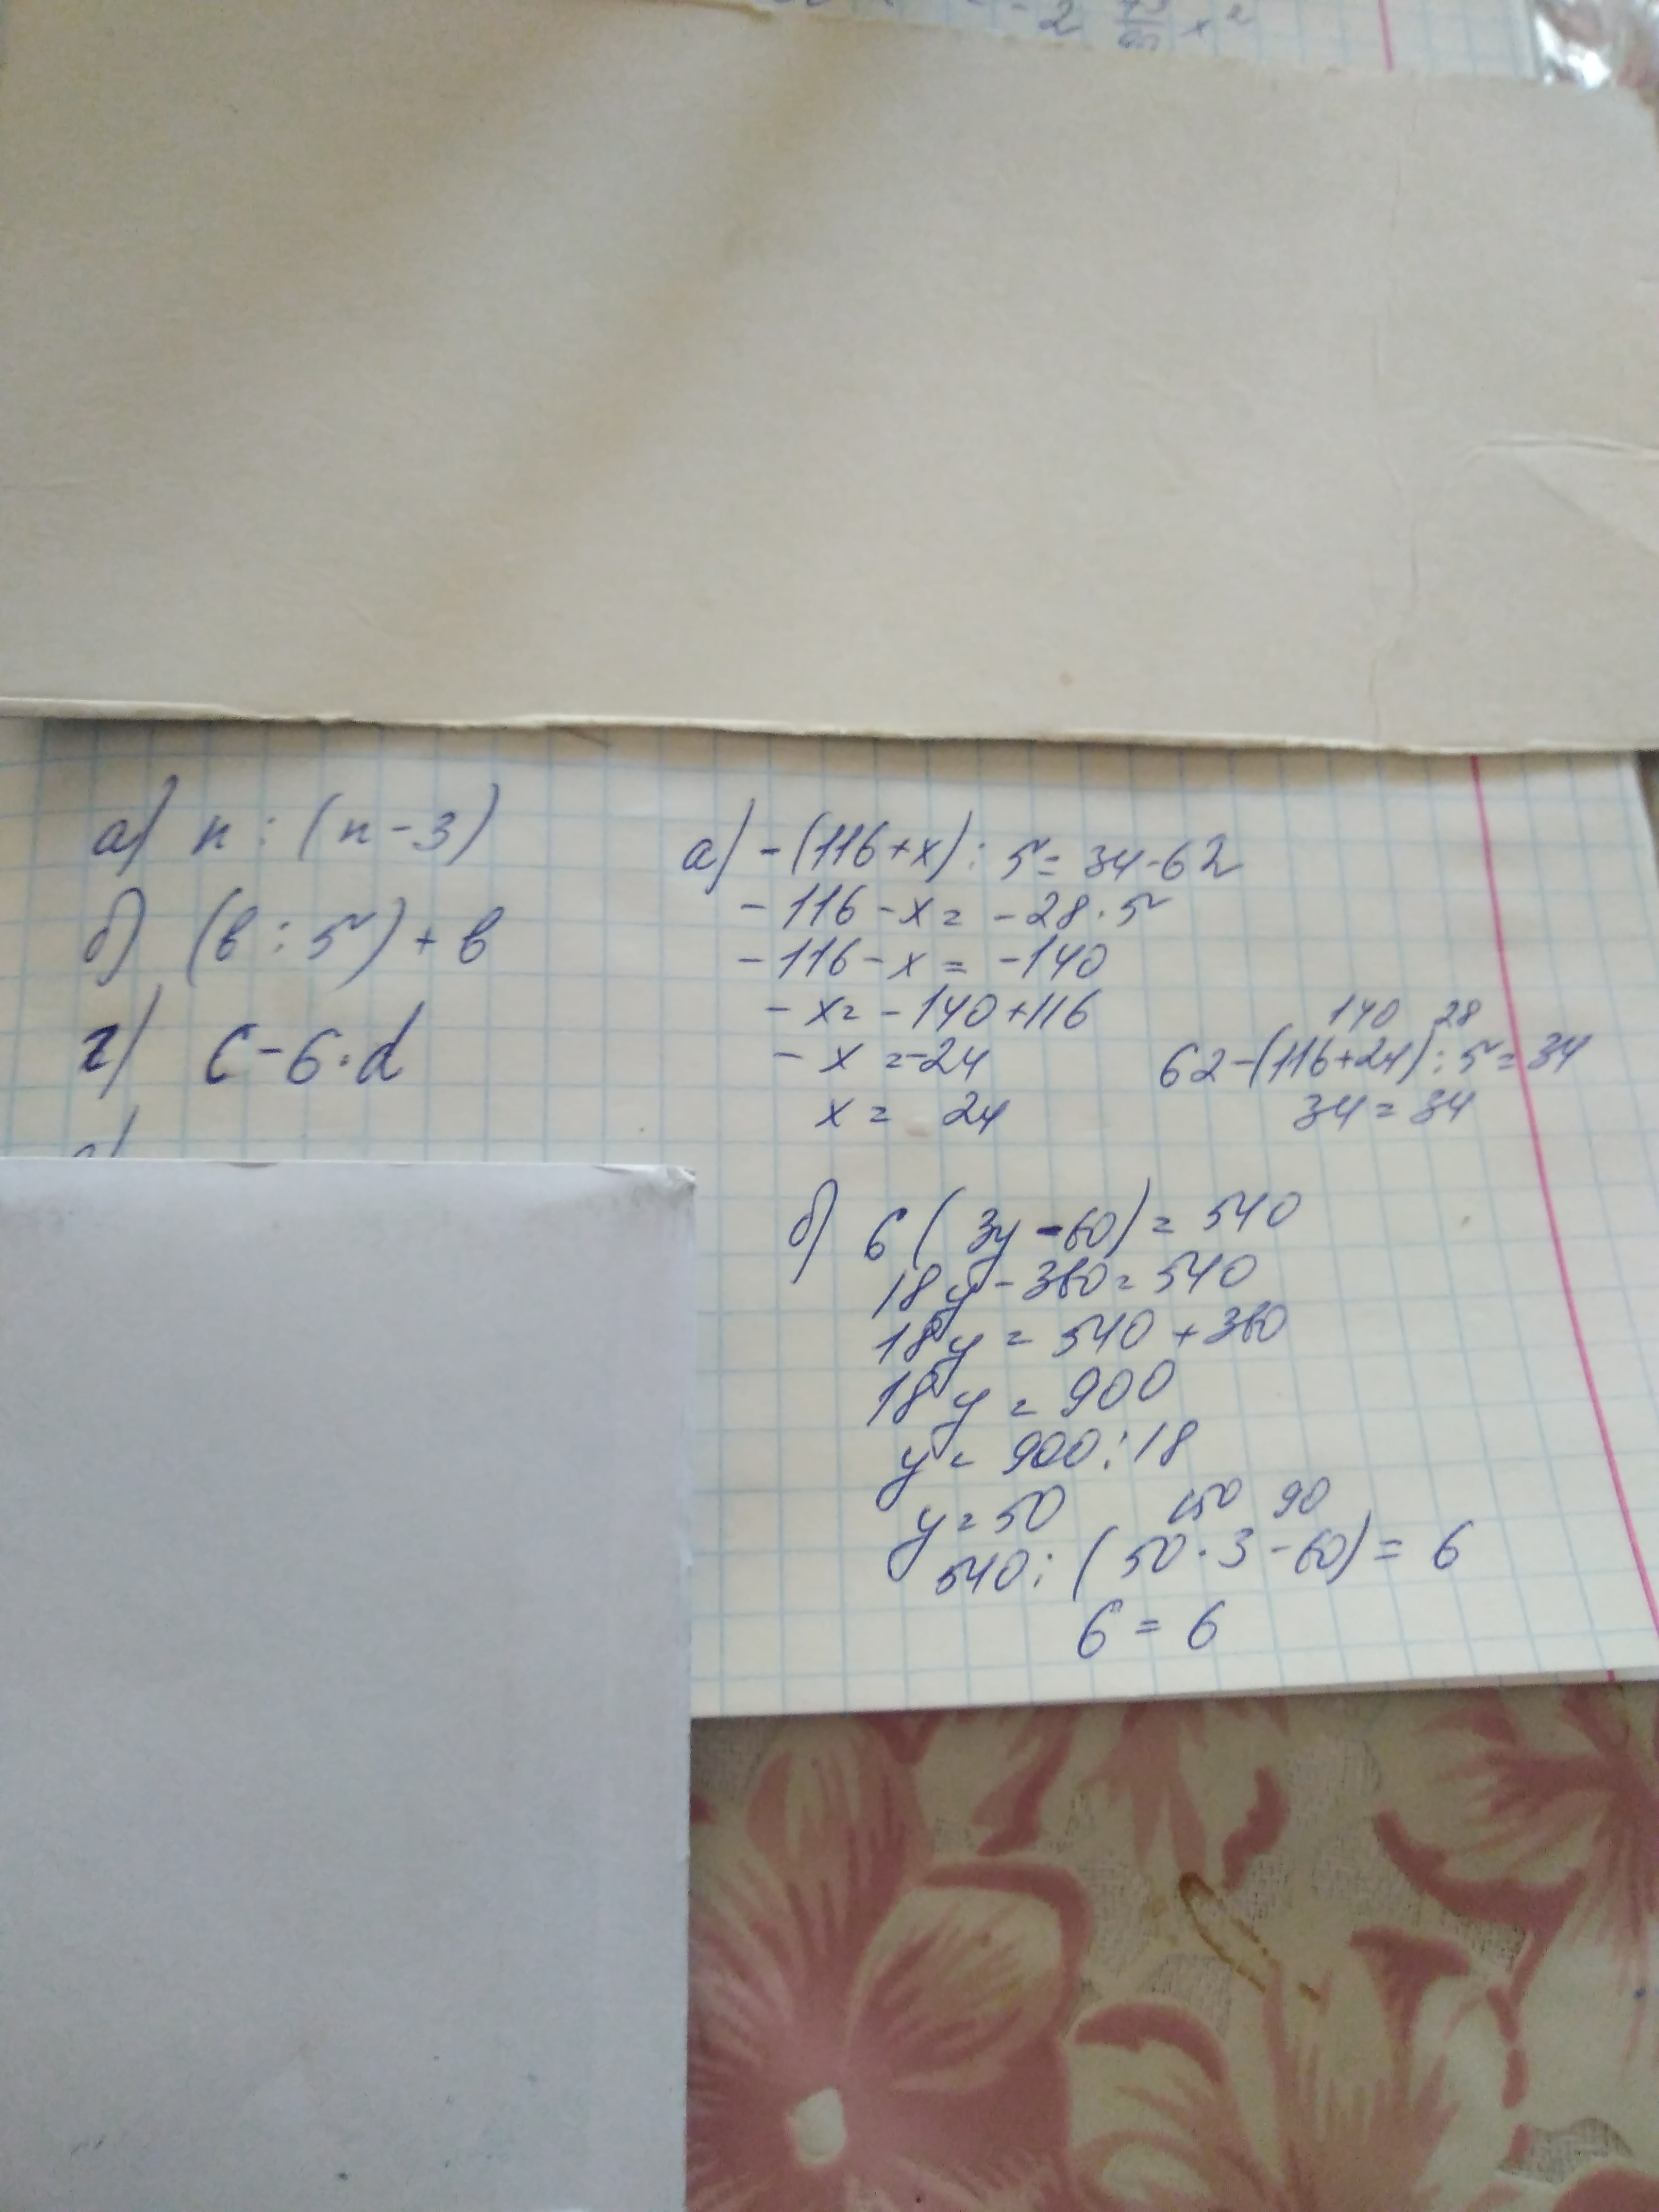 а) n : (n - 3)
б) (в : 5) + в
г) c - 6 · d
а) - (116 + x) : 5 = 34 - 62
- 116 - x = - 28 · 5
- 116 - x = - 140
- x = - 140 + 116
- x = - 24
x = 24
140 28
62 - (116 + 24) : 5 = 34
34 = 34
б) 6 ( 3y - 60) = 540
18y - 360 = 540
18y = 540 + 360
18y = 900
y = 900 : 18
y = 50
150 90
540 : ( 50 · 3 - 60) = 6
6 = 6